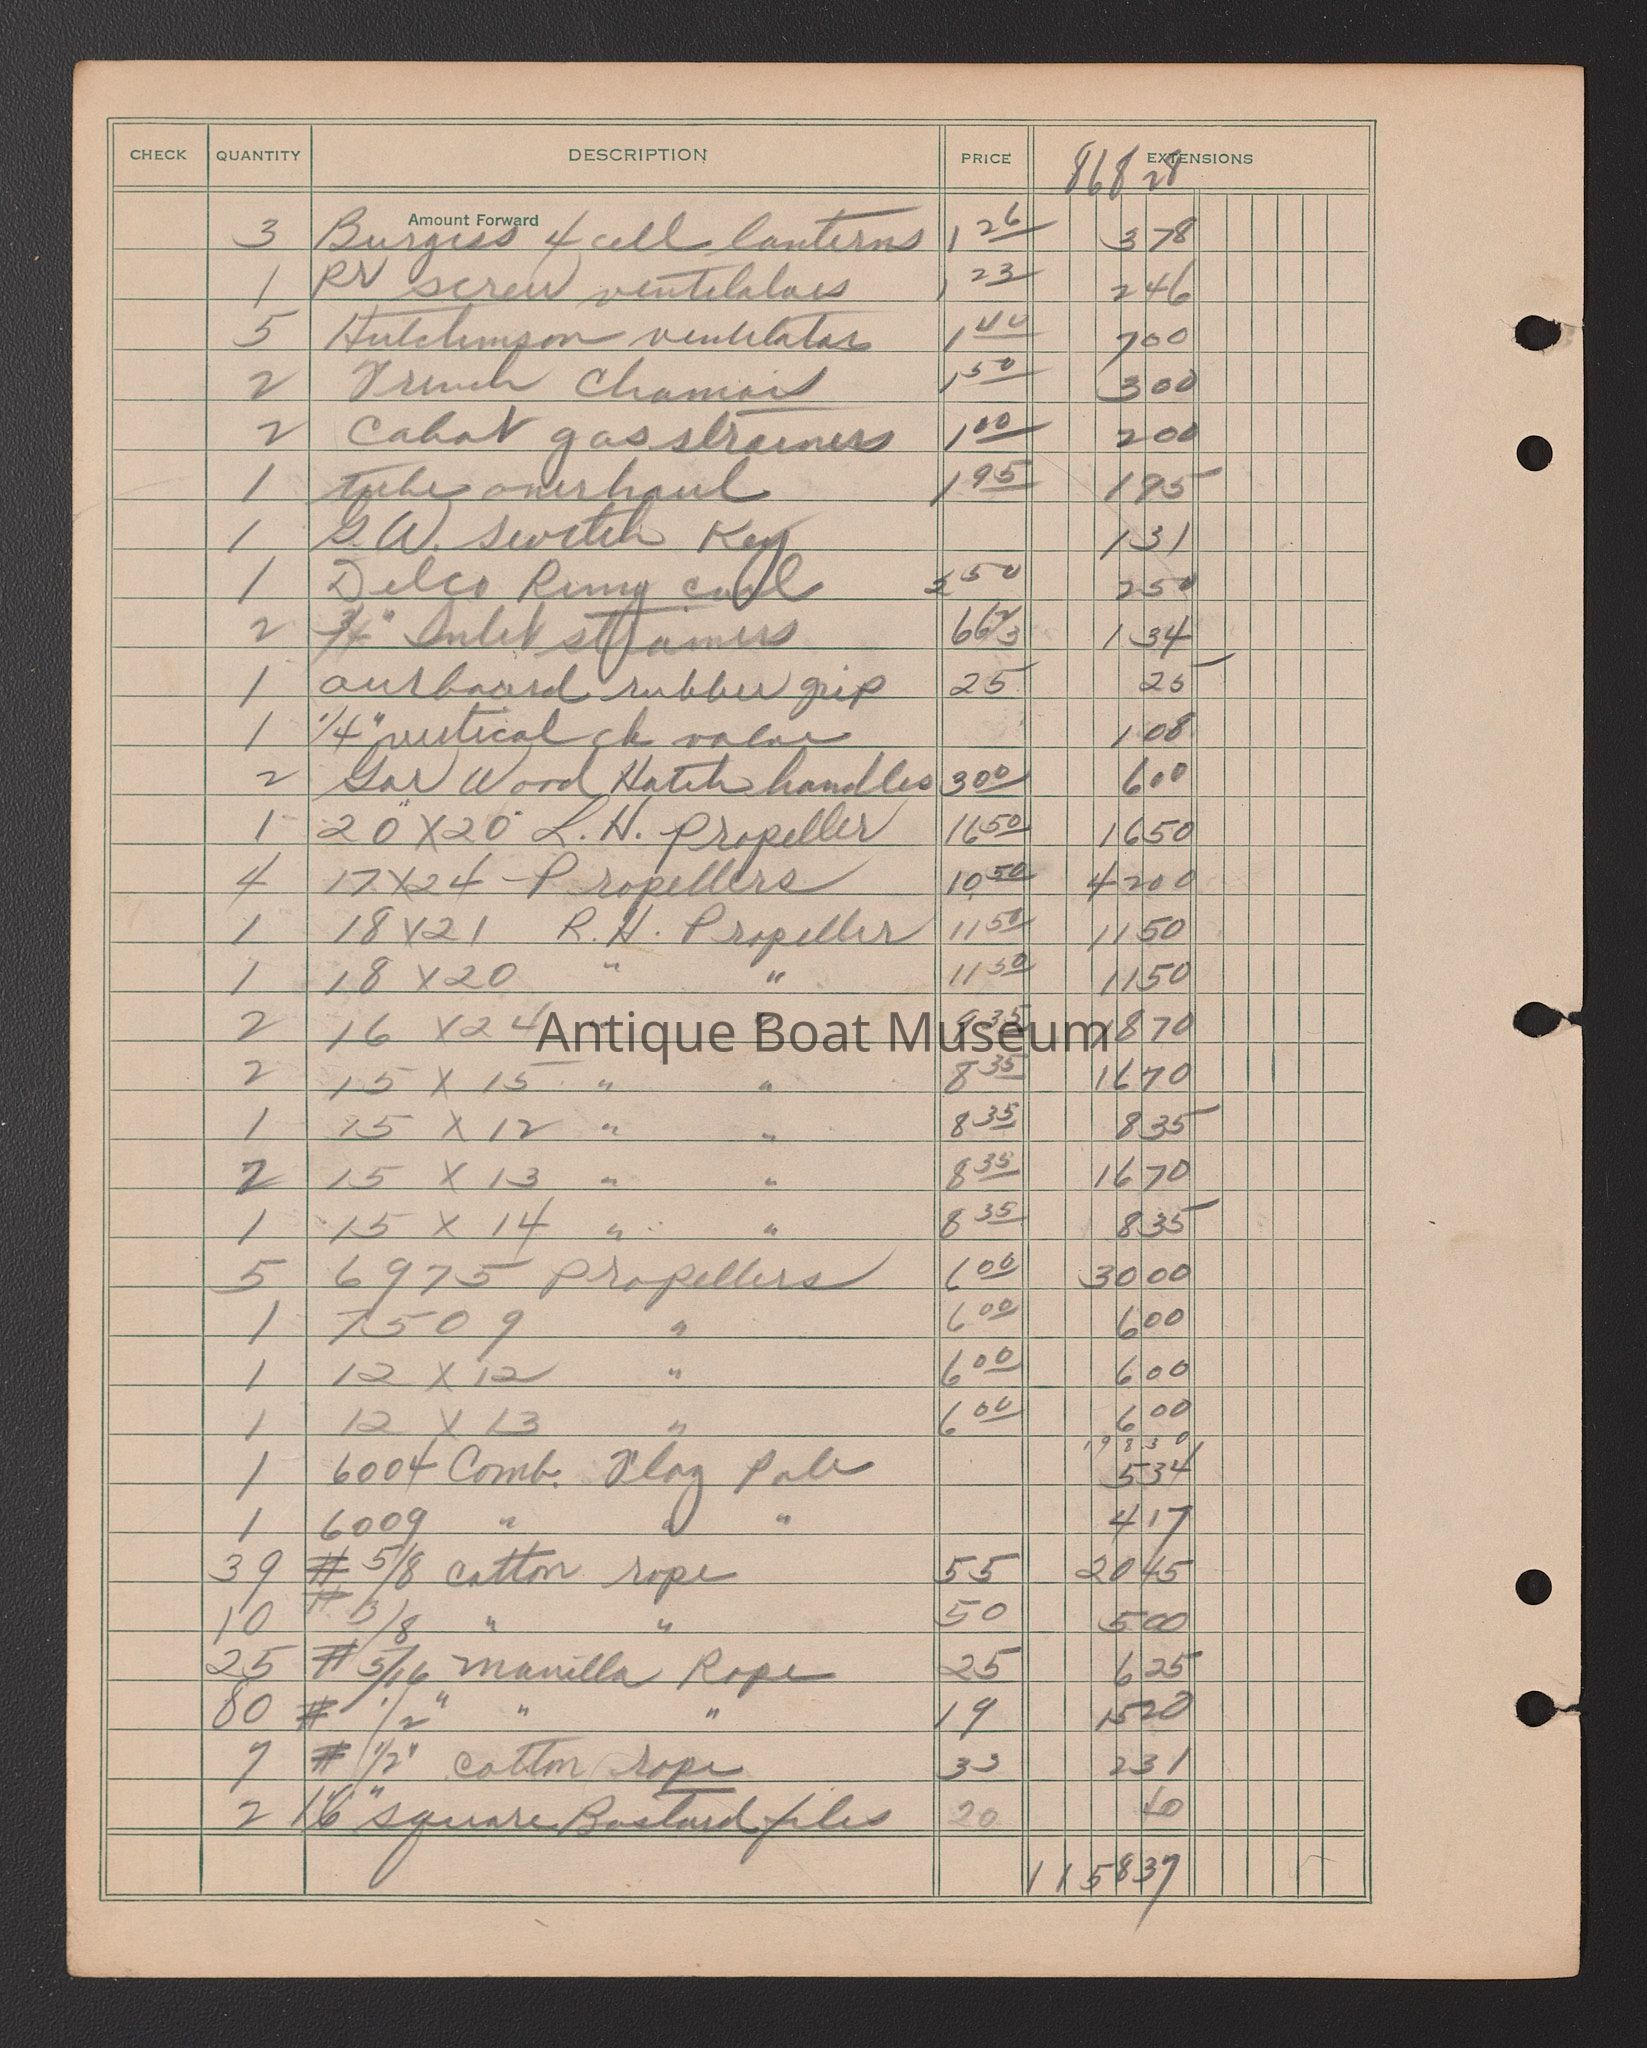 CHECK QUANTITY DESCRIPTION PRICE EXTENSIONS
868 28
Amount Forward
3 Burgess 4 cell lanterns 1 26 3 78
1 Pr screw ventilators 1 23 2 46
5 Hutchinson ventilator 1 40 7 00
2 French Chamois 1 50 3 00
2 Cabot gas strainers 1 00 2 00
1 tube overhaul 1 95 1 95
1 G.W. Switch Key 1 31
1 Delco Remy coil 2 50 2 50
2 3/4" Inlet strainers 66 2/3 1 34
1 ourboard rubber grip 25 25
1 1/4" vertical ck valve 1 08
2 Gar Wood Hatch handles 3 00 6 00
1 20" X 20" L.H. Propeller 16 50 16 50
4 17 X 24 Propellers 10 50 42 00
1 18 X 21 R.H. Propeller 11 50 11 50
1 18 X 20 " " 11 50 11 50
2 16 X 24 " " 9 35 18 70
Antique Boat Museum
2 15 X 15 " " 8 35 16 70
1 15 X 12 " " 8 35 8 35
2 15 X 13 " " 8 35 16 70
1 15 X 14 " " 8 35 8 35
5 6975 Propellers 6 00 30 00
1 7509 " 6 00 6 00
1 12 X 12 " 6 00 6 00
1 12 X 13 " 6 00 6 00
198 30
1 6004 Comb. Flag Pole 5 34
1 6009 " " " 4 17
39 # 5/8 cotton rope 55 20 45
10 # 3/8 " " 50 5 00
25 # 5/16 Manilla Rope 25 6 25
80 # 1/2" " " 19 15 20
7 # 1/2" cotton rope 33 2 31
2 16" square Bastard files 20 40
1158 37